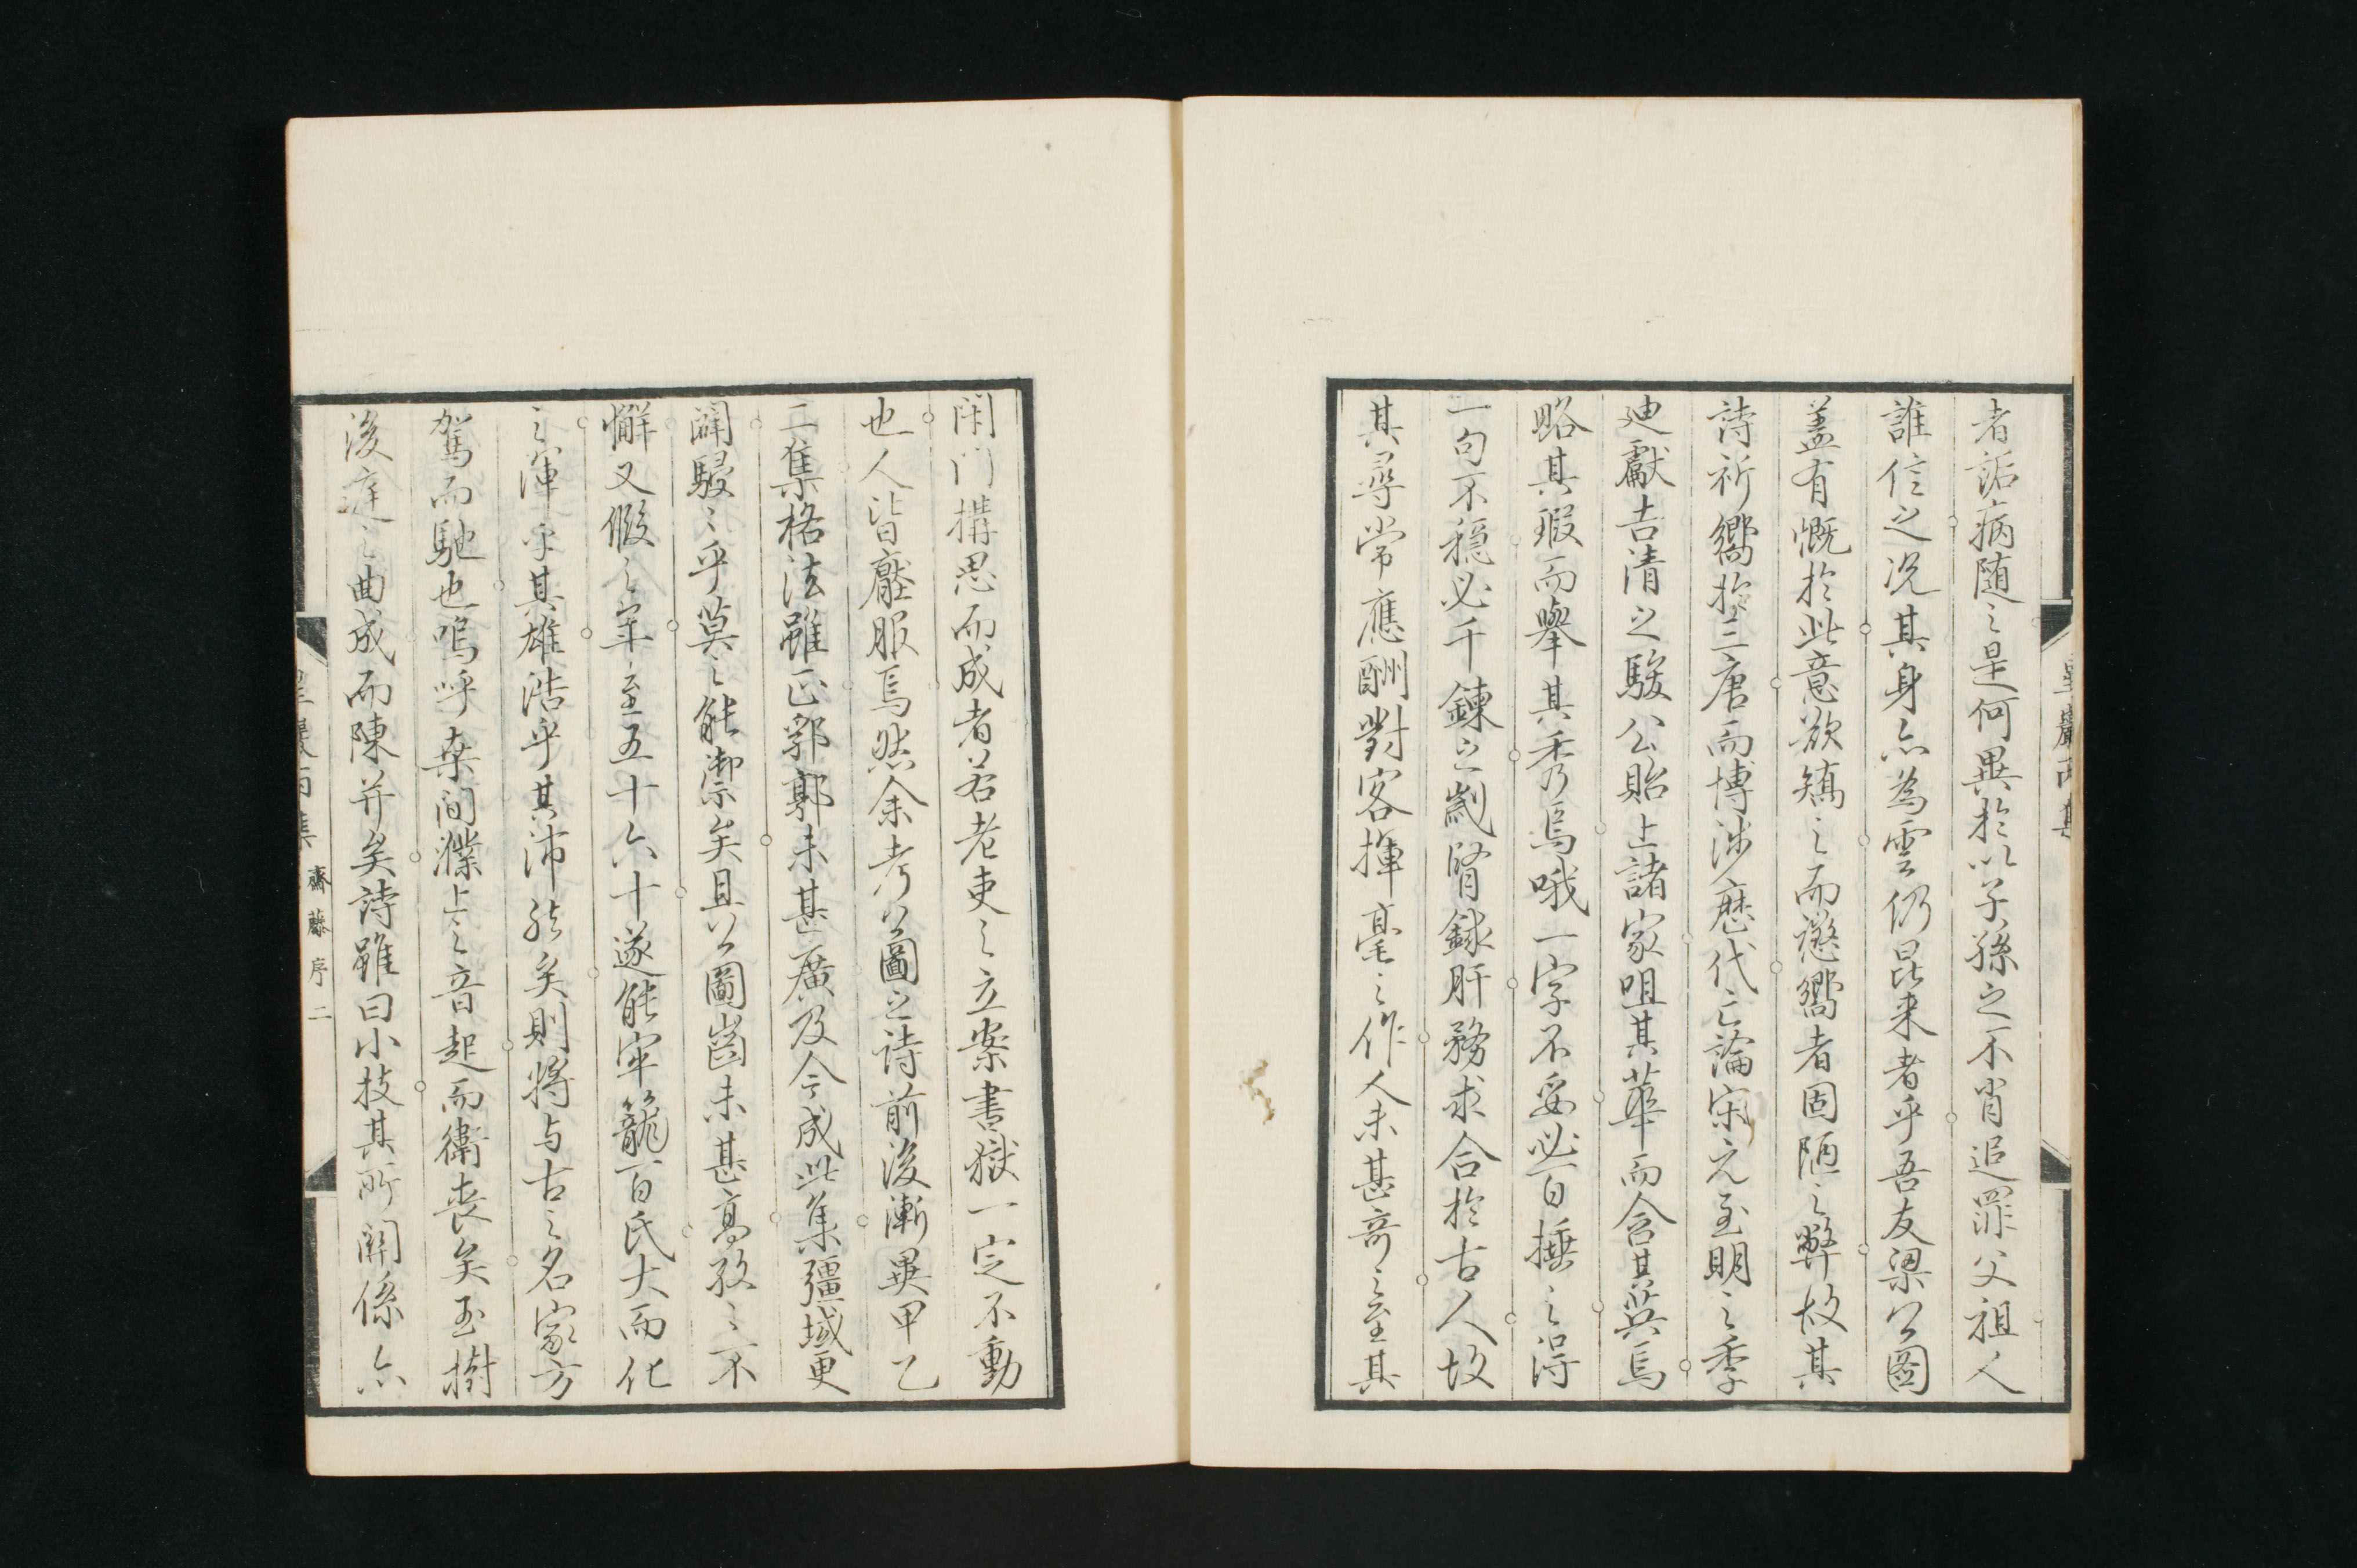 者詬病随之是何異於以子孫之不肖追罪父祖人
誰信之况其身亦為雲仍昆来者乎吾友梁公圖
盖有慨於此意欲矯之而懲嚮者固陋之弊故其
詩祈嚮於三唐而博渉歴代亡論宋元至明之季
廸獻吉清之駿公貽上諸家咀其華而含其英焉
略其瑕而舉其秀焉哦一字不妥必百捶之得
一句不穏必千錬之劌腎鉥肝務求合於古人故
其尋常應酬對客揮毫之作人未甚奇之至其
閉門搆思而成者若老吏之立案書獄一定不動
也人皆壓服焉然余考公圖之詩前後漸異甲乙
二集格法雖正郛郭未甚廣及今成此集彊域更
闢駸々乎莫之能禦矣且公圖齒未甚高孜々不
懈又假之年至五十六十遂能牢籠百氏大而化
之渾乎其雄浩乎其沛然矣則将与古之名家方
駕而馳也嗚呼桒間濮上之音起而衛喪矣玉樹
後庭之曲成而陳并矣詩雖曰小技其所關係亦
齋藤序 二